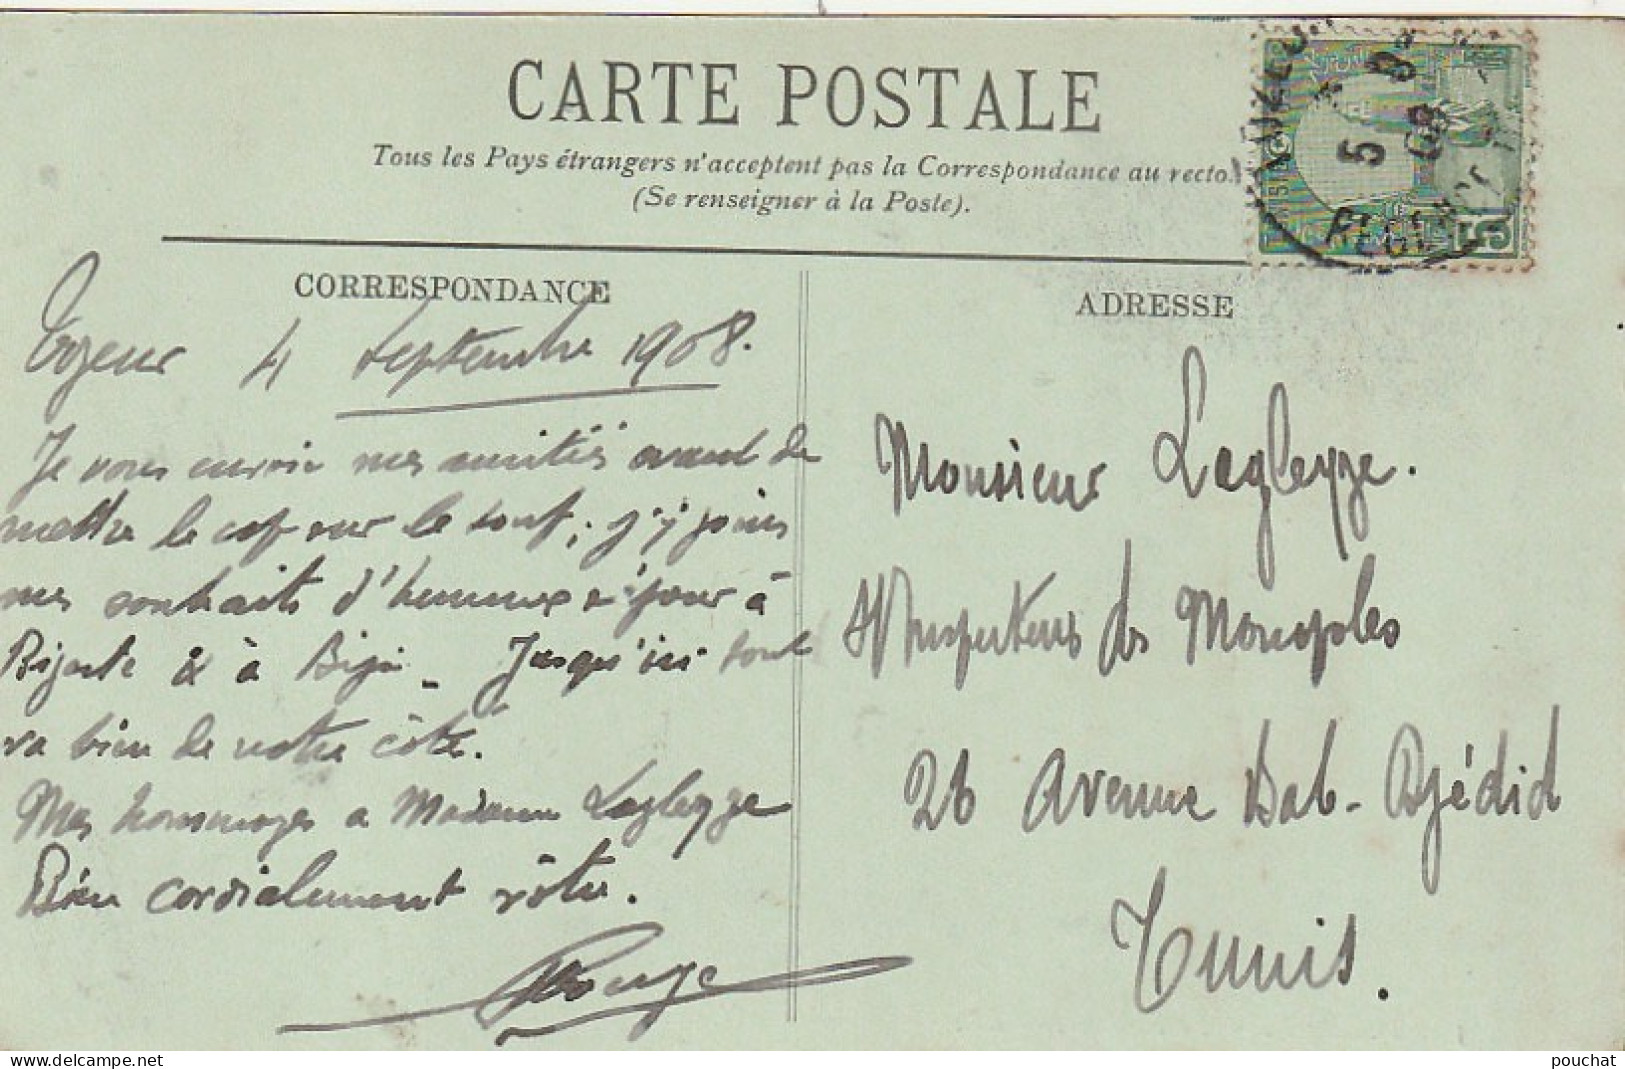 CARTE POSTALE
Tous les Pays étrangers n'acceptent pas la Correspondance au recto.
(Se renseigner à la Poste).
CORRESPONDANCE
Tozeur 4 Septembre 1908.
Je vous envoie mes amitiés avant de
mettre le cap sur le Souf ; j'y joins
mes souhaits d'heureux séjour à
Bizerte & à Béja - Jusqu'ici tout
va bien de notre côté.
Mes hommages a Madame Lagleyze
Bien cordialement vôtre.
Rouge
ADRESSE
Monsieur Lagleyze.
Inspecteur des Monopoles
26 Avenue Bab-Djédid
Tunis.
5
08
5
pouchat